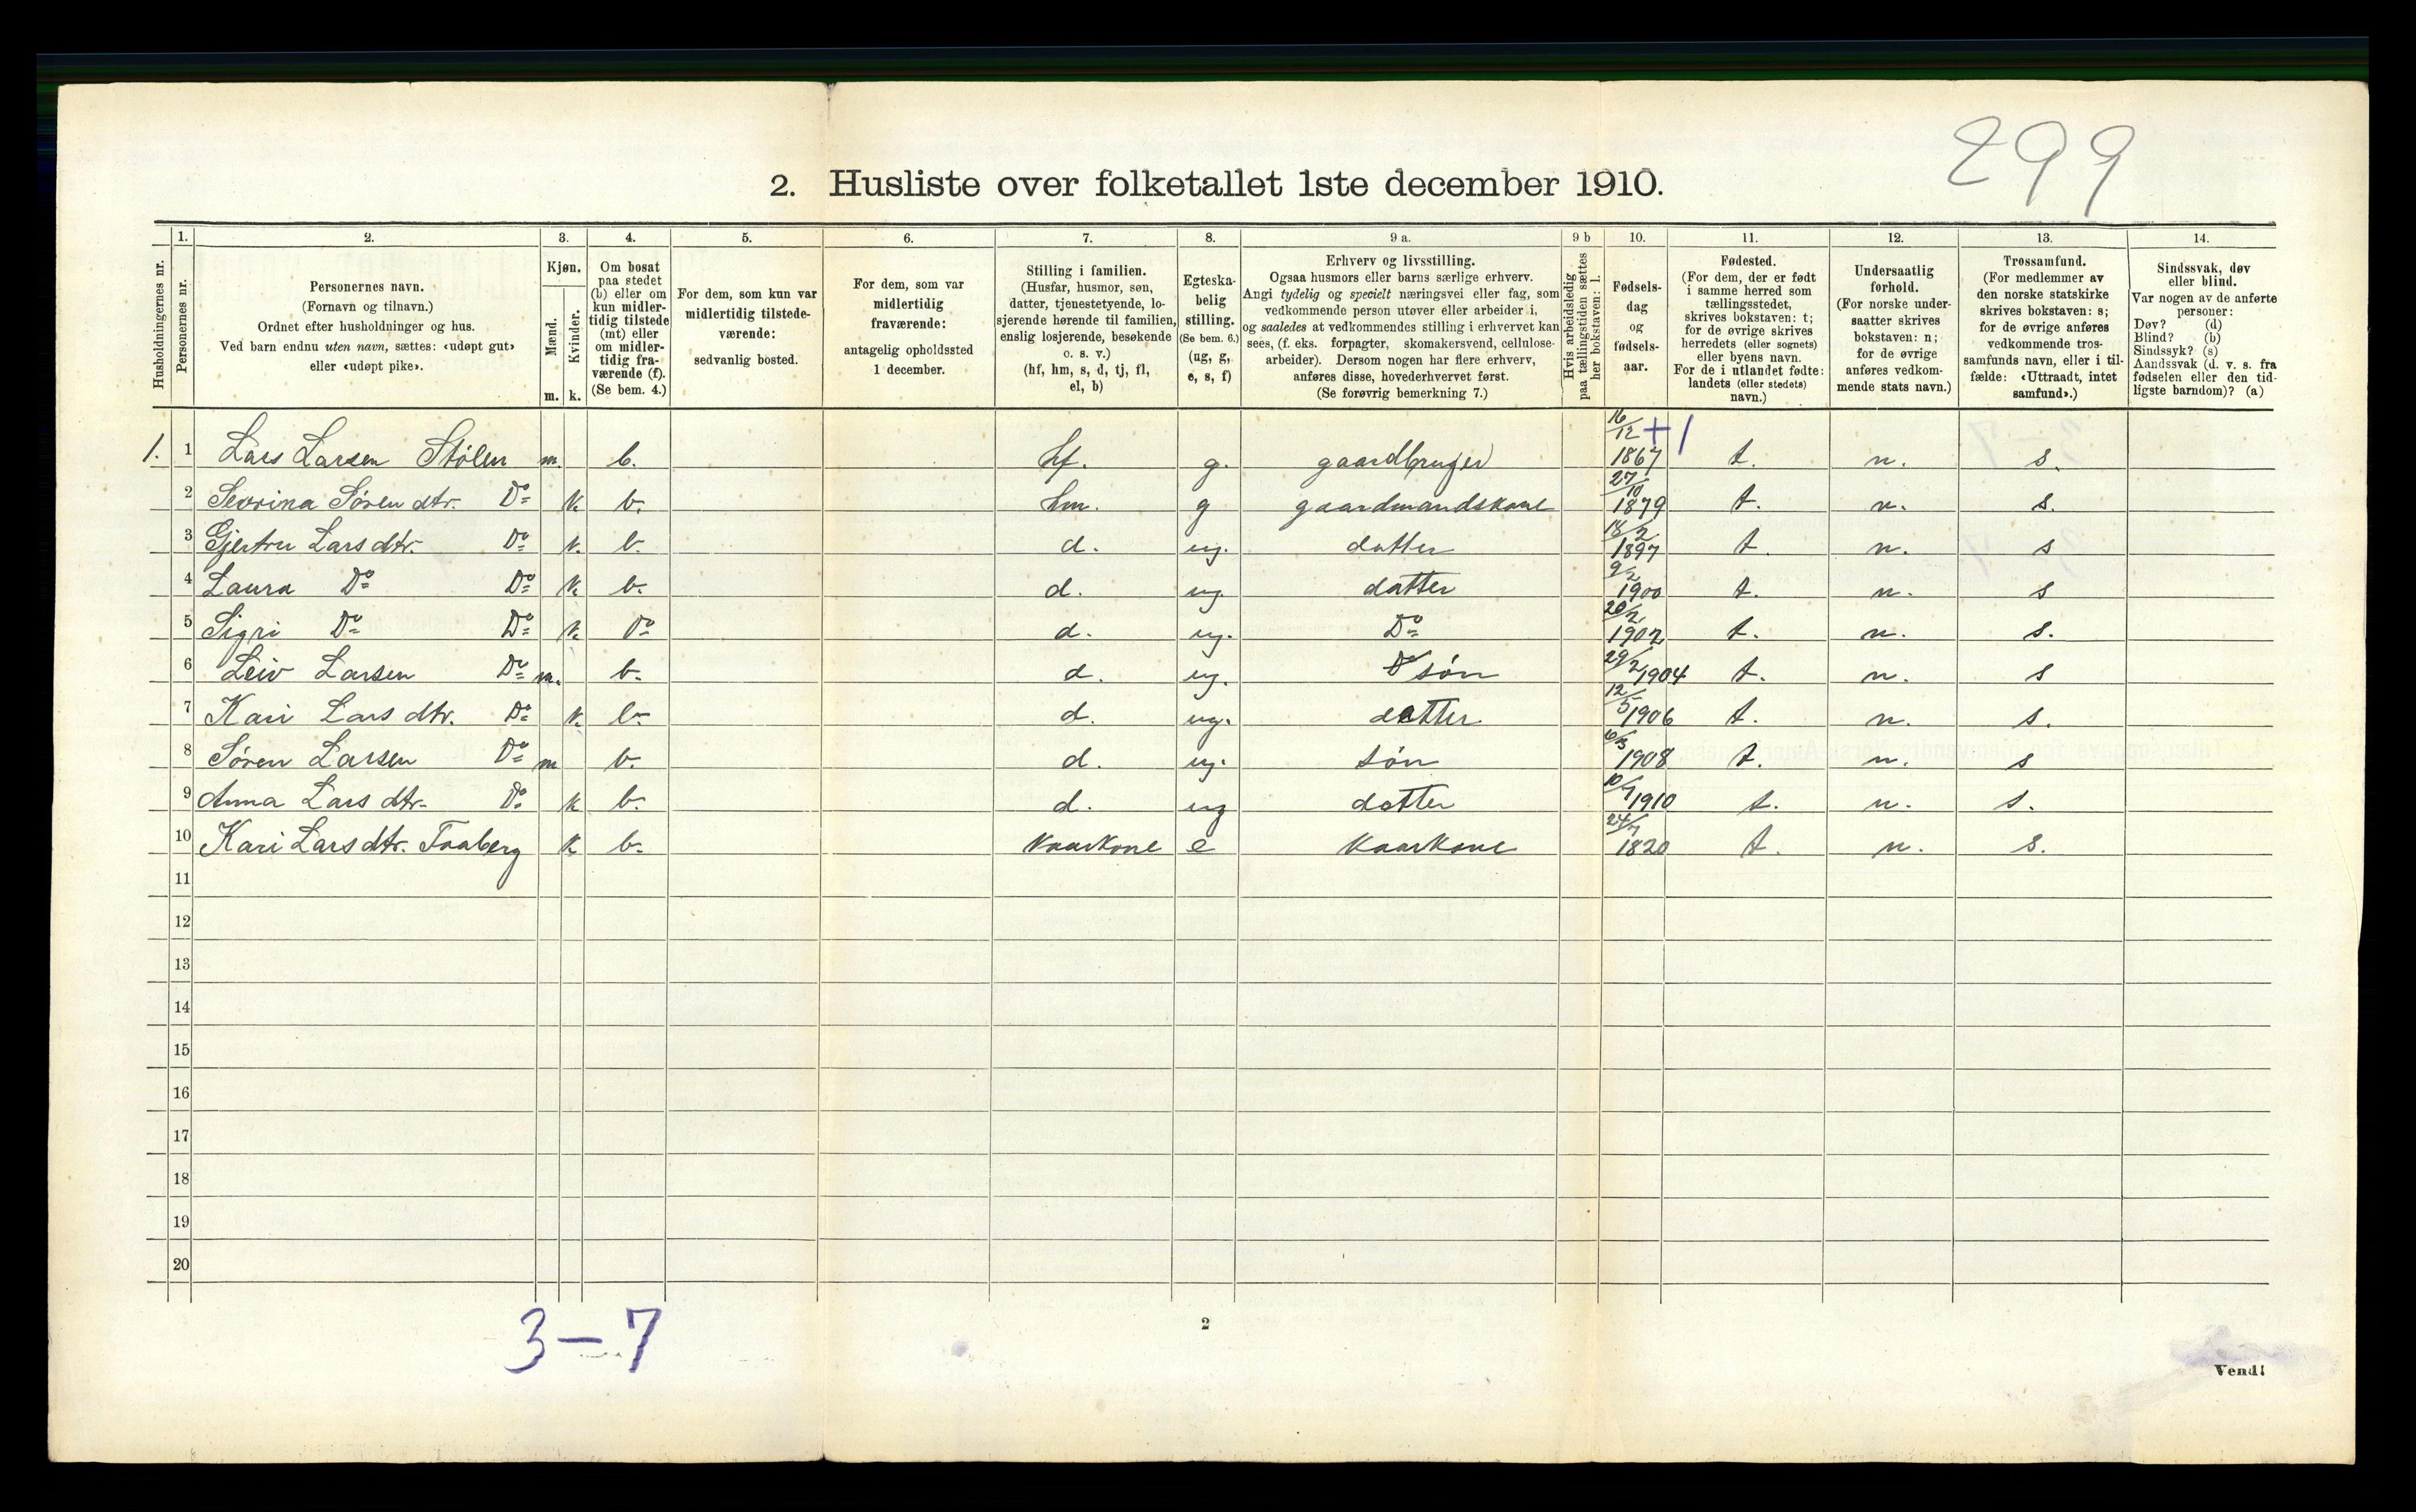 299
2. Husliste over folketallet 1ste december 1910.
1. 2. 3. 4. 5. 6. 7. 8. 9 a. 9 b 10. 11. 12. 13. 14.
Husholdningernes nr.
Personernes nr.
Personernes navn.
(Fornavn og tilnavn.)
Ordnet efter husholdninger og hus.
Ved barn endnu uten navn, sættes: «udøpt gut»
eller «udøpt pike».
Kjøn.
Mænd.
Kvinder.
m. k.
Om bosat
paa stedet
(b) eller om
kun midler-
tidig tilstede
(mt) eller
om midler-
tidig fra-
værende (f).
(Se bem. 4.)
For dem, som kun var
midlertidig tilstede-
værende:
sedvanlig bosted.
For dem, som var
midlertidig
fraværende:
antagelig opholdssted
1 december.
Stilling i familien.
(Husfar, husmor, søn,
datter, tjenestetyende, lo-
sjerende hørende til familien,
enslig losjerende, besøkende
o. s. v.)
(hf, hm, s, d, tj, fl,
el, b)
Egteska-
belig
stilling.
(Se bem. 6.)
(ug, g,
e, s, f)
Erhverv og livsstilling.
Ogsaa husmors eller barns særlige erhverv.
Angi tydelig og specielt næringsvei eller fag, som
vedkommende person utøver eller arbeider i,
og saaledes at vedkommendes stilling i erhvervet kan
sees, (f. eks. forpagter, skomakersvend, cellulose-
arbeider). Dersom nogen har flere erhverv,
anføres disse, hovederhvervet først.
(Se forøvrig bemerkning 7.)
Hvis arbeidsledig
paa tællingstiden sættes
her bokstaven: l.
Fødsels-
dag
og
fødsels-
aar.
Fødested.
(For dem, der er født
i samme herred som
tællingsstedet,
skrives bokstaven: t;
for de øvrige skrives
herredets (eller sognets)
eller byens navn.
For de i utlandet fødte:
landets (eller stedets)
navn.)
Undersaatlig
forhold.
(For norske under-
saatter skrives
bokstaven: n;
for de øvrige
anføres vedkom-
mende stats navn.)
Trossamfund.
(For medlemmer av
den norske statskirke
skrives bokstaven: s;
for de øvrige anføres
vedkommende tros-
samfunds navn, eller i til-
fælde: «Uttraadt, intet
samfund».)
Sindssvak, døv
eller blind.
Var nogen av de anførte
personer:
Døv? (d)
Blind? (b)
Sindssyk? (s)
Aandssvak (d. v. s. fra
fødselen eller den tid-
ligste barndom)? (a)
1. 1 Lars Larsen Stølen m. b. hf. g. gaardbruger 16/12 1867 +1 t. n. s.
2 Sevrina Sørendtr. Do k b. hm. g gaardmandskone 27/10 1879 t. n. s.
3 Gjertru Larsdtr. Do k. b. d. ug. datter 18/2 1897 t. n. s
4 Laura Do Do k b. d. ug. datter 9/2 1900 t. n. s
5 Sigri Do Do k Do d. ug. Do 20/2 1902 t. n. s.
6 Leiv Larsen Do m. b. d. ug. søn 29/2 1904 t. n. s
7 Kari Larsdtr. Do k. b. d. ug. datter 12/5 1906 t. n. s.
8 Søren Larsen Do m b. d. ug. søn 1908 t. n. s
9 Anna Larsdtr. Do k b. d. ug datter 1910 t. n. s.
10 Kari Larsdtr. Faaberg k b. Kaarkone e Kaarkone 24/7 1820 t. n. s.
11
12
13
14
15
16
17
18
19
20
3-7
2
Vend!